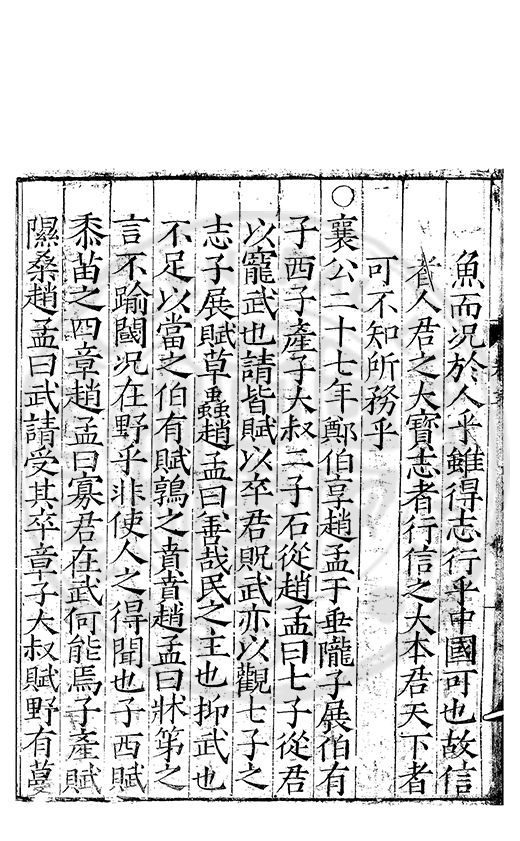 魚而况於人乎雖得志行乎中國可也故信
者人君之大寶志者行信之大本君天下者
可不知所務乎
○襄公二十七年鄭伯享趙孟于垂隴子展伯有
子西子產子大叔二子石從趙孟曰七子從君
以寵武也請皆賦以卒君貺武亦以觀七子之
志子展賦草蟲趙孟曰善哉民之主也抑武也
不足以當之伯有賦鶉之賁賁趙孟曰牀笫之
言不踰閾况在野乎非使人之得聞也子西賦
黍苗之四章趙孟曰寡君在武何能焉子產賦
隰桑趙孟曰武請受其卒章子大叔賦野有蔓